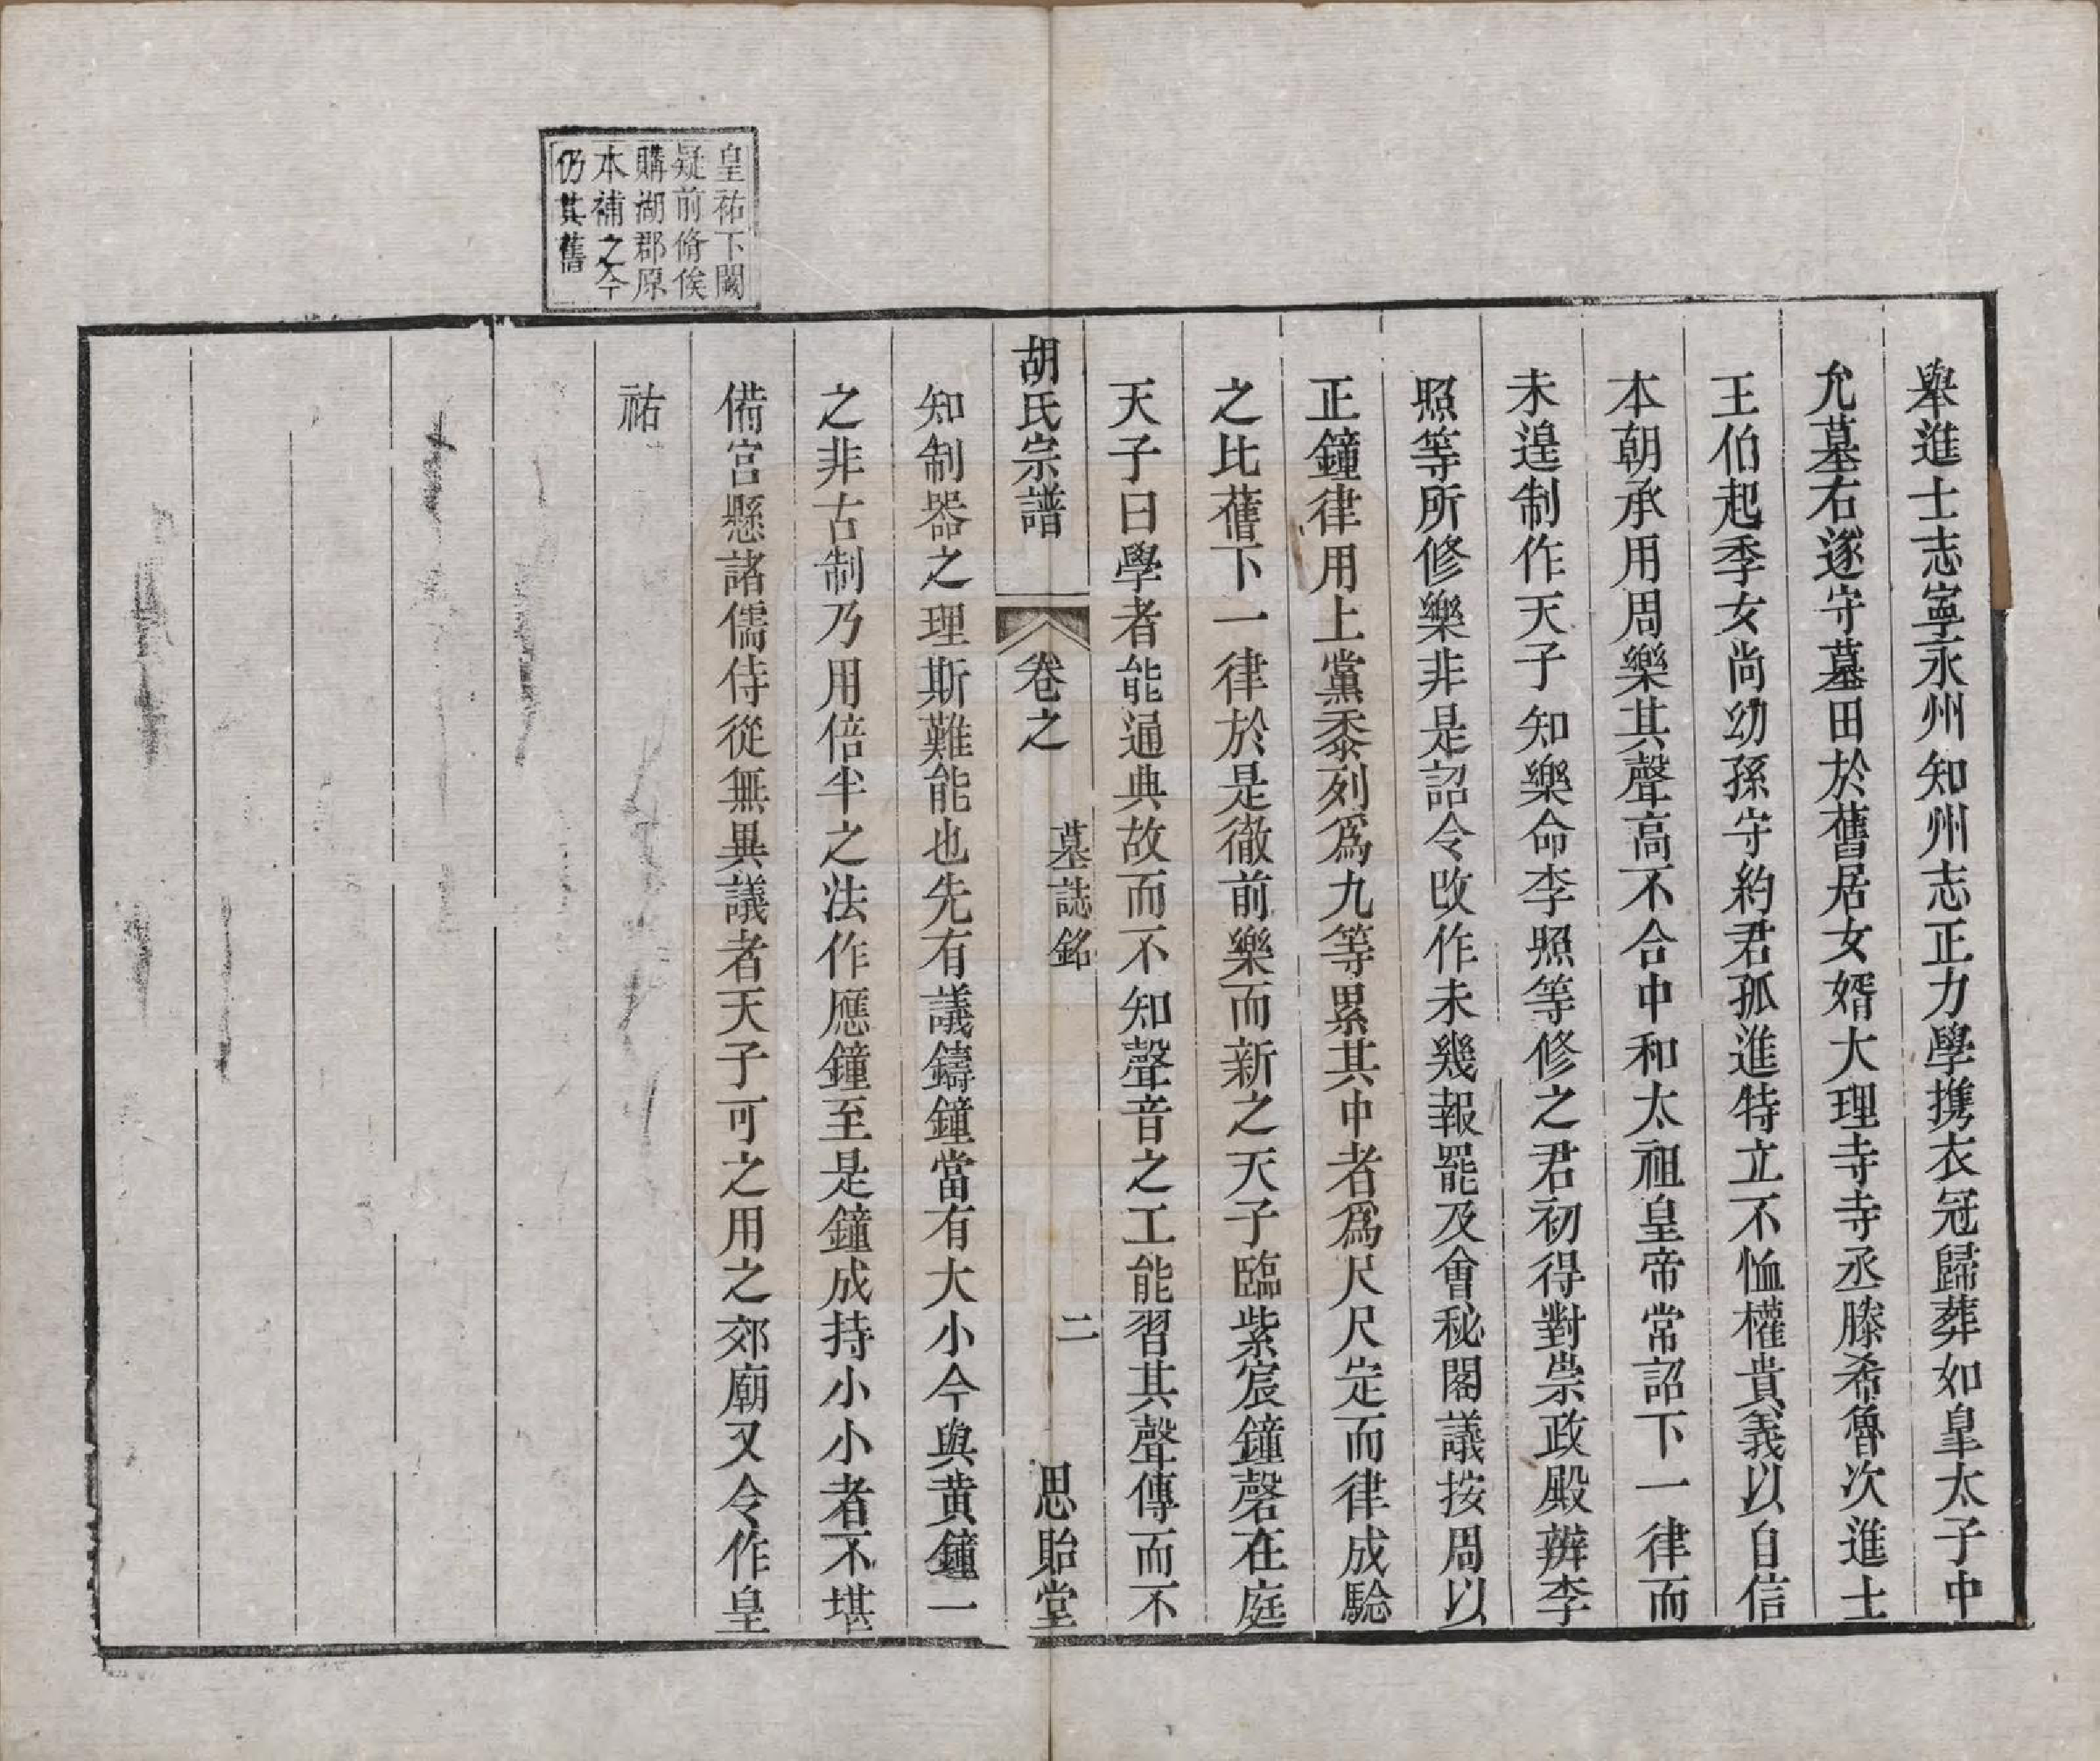 舉進士志寧永州知州志正力學攜衣冠歸葬如皇太子中
允墓右遂守墓田於舊居女婿大理寺寺丞滕希魯次進士
王伯起季女尚幼孫守約君孤進特立不恤權貴義以自信
本朝承用周樂其聲高不合中和太祖皇帝常詔下一律而
未遑制作天子知樂命李照等修之君初得對崇政殿辨李
照等所修樂非是詔令改作未幾報罷及會秘閣議按周以
正鐘律用上黨黍列爲九等累其中者爲尺尺定而律成驗
之比舊下一律於是徹前樂而新之天子臨紫宸鐘磬在庭
天子曰學者能通典故而不知聲音之工能習其聲傳而不
胡氏宗譜 卷之 墓誌銘 二 思貽堂
知制器之理斯難能也先有議鑄鐘當有大小今與黄鐘一
之非古制乃用倍半之法作應鐘至是鐘成持小小者不堪
備宮懸諸儒侍從無異議者天子可之用之郊廟又令作皇
祐
皇祐下闕
疑前脩俟
購湖郡原
本補之今
仍其舊